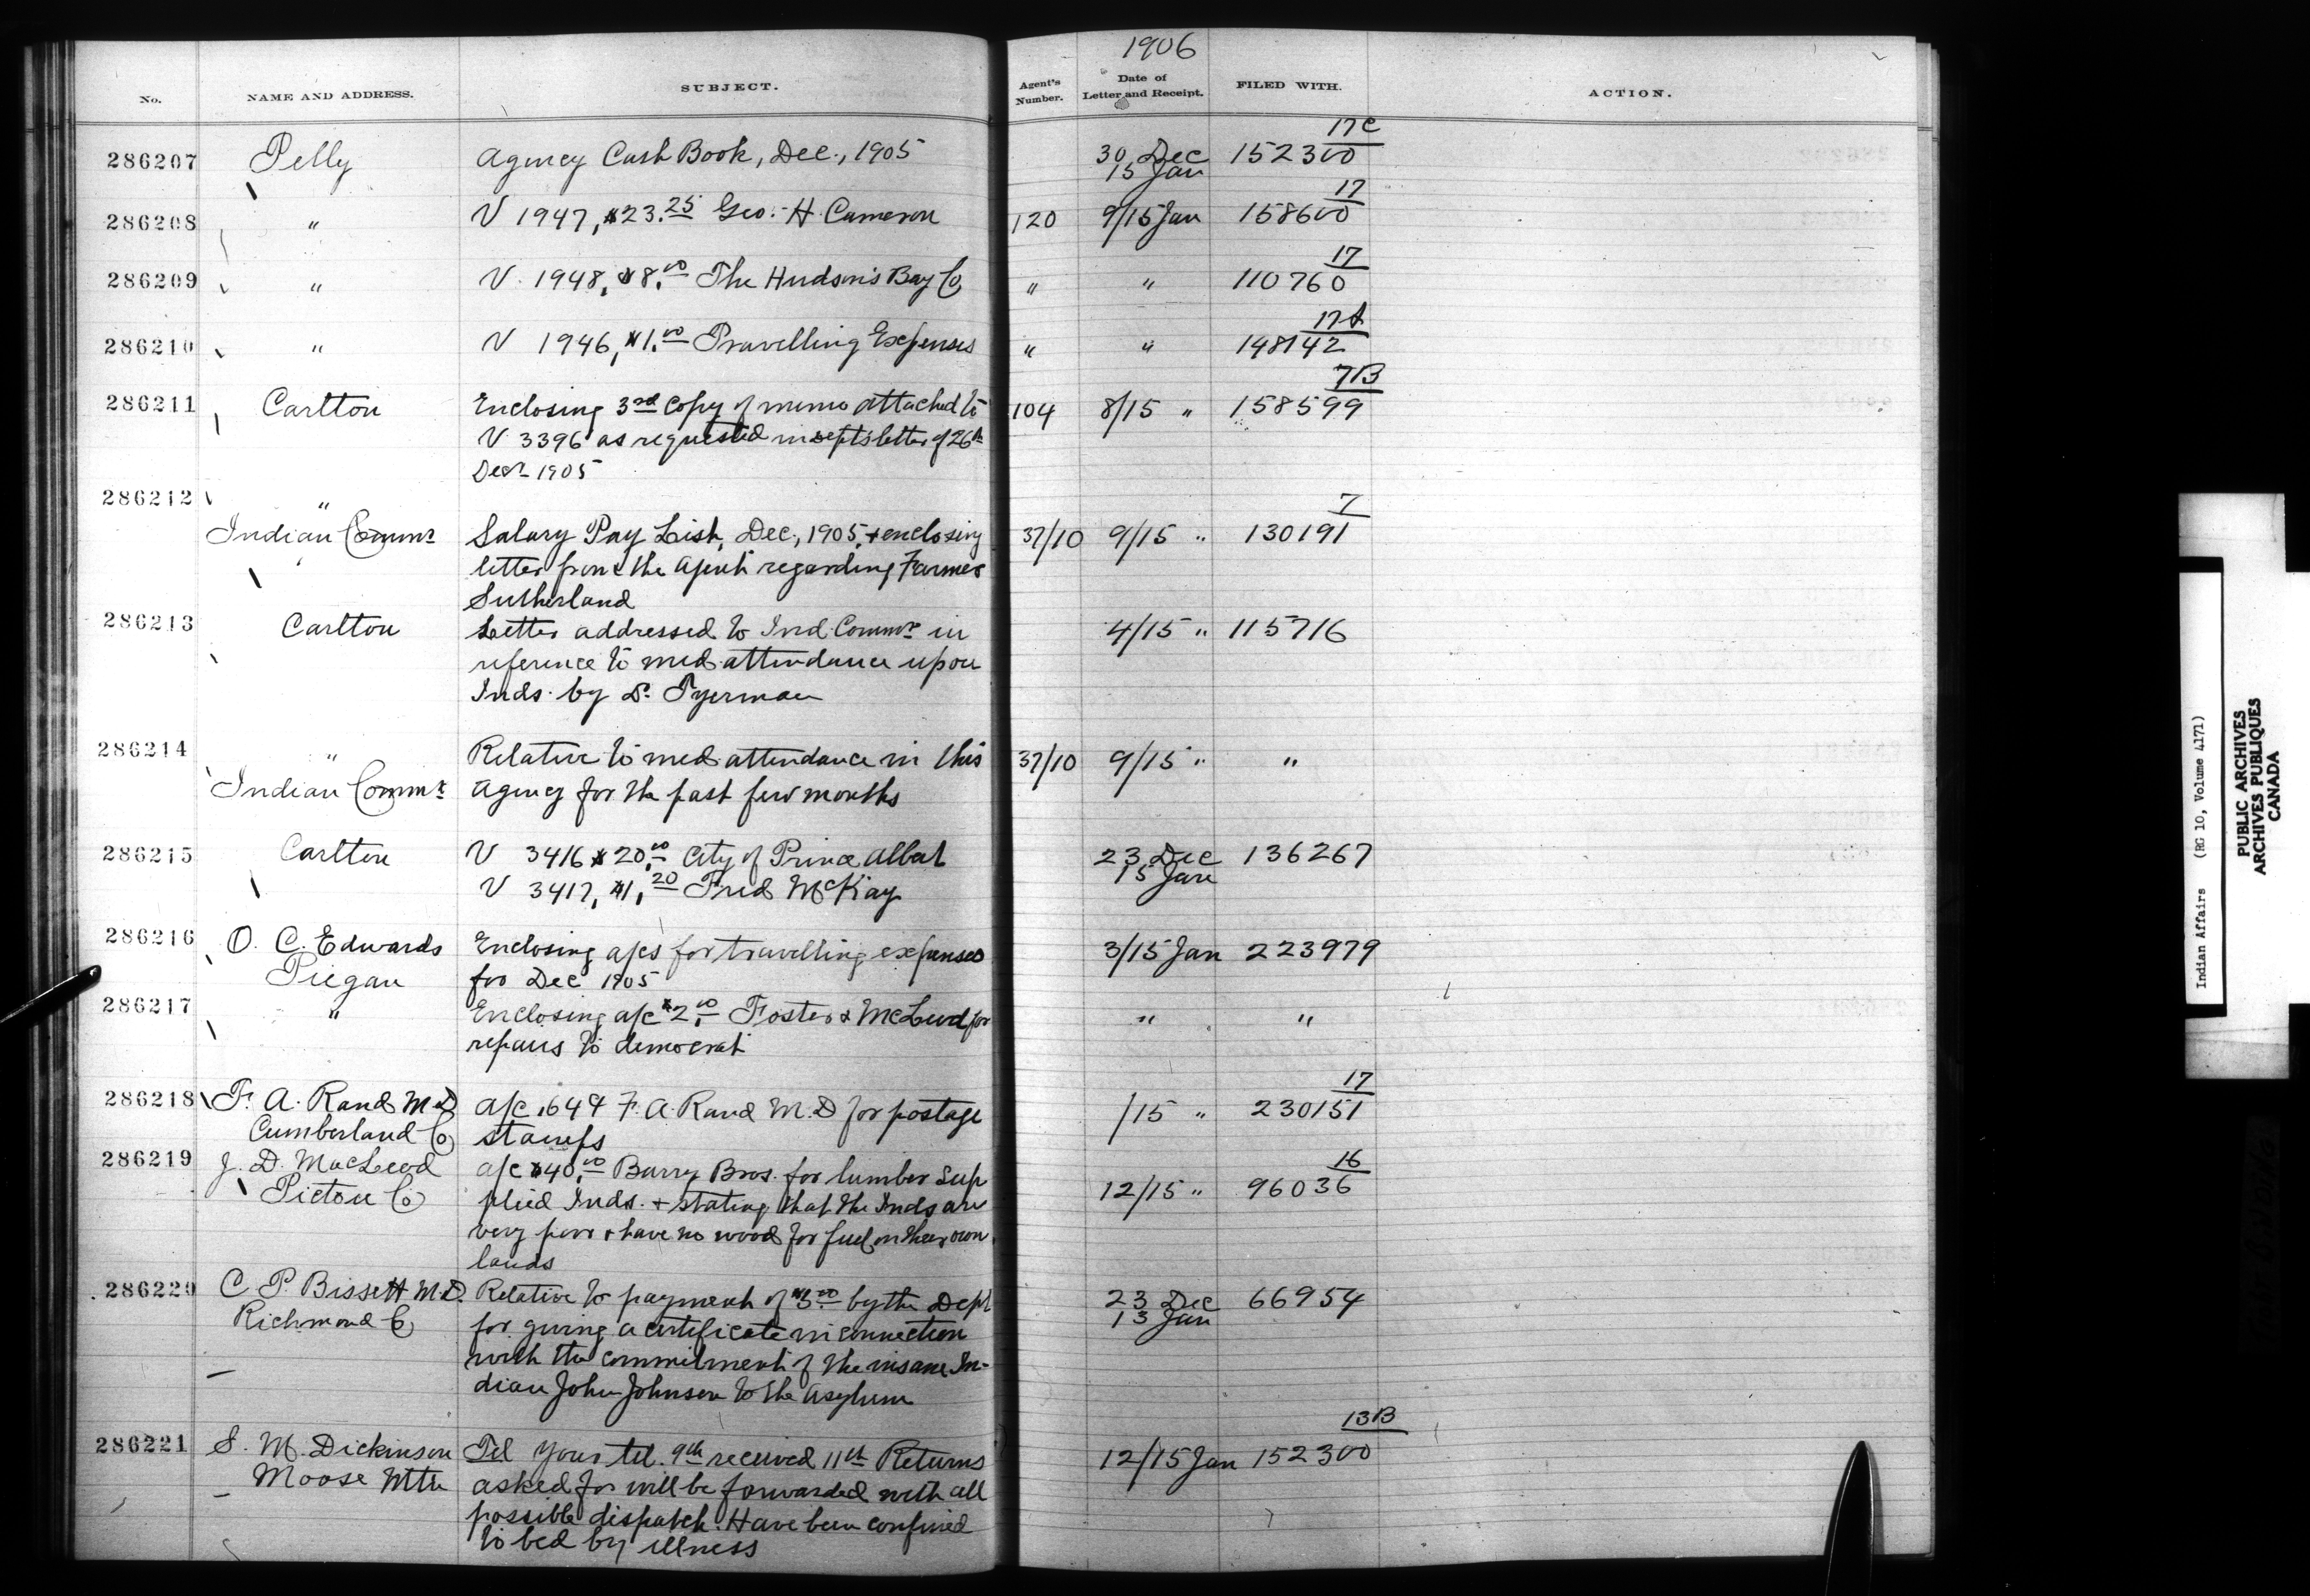 1906
No. NAME AND ADDRESS. SUBJECT. Agent's Number. Date of Letter and Receipt. FILED WITH. ACTION.
17C
286207 Pelly Agency Cash Book, Dec., 1905 30 Dec 152300
15 Jan
17
286208 " V 1947, $23.25 Geo. H. Cameron 120 9/15 Jan 158600
17
286209 " V. 1948, $8.00 The Hudson's Bay Co " " 110760
17A
286210 " V 1946, $1.00 Travelling Expenses " " 148142
7B
286211 Carlton Enclosing 3rd copy of memo attached to 104 8/15 " 158599
V 3396 as requested in depts letter of 26th
Decr 1905
286212 "
7
Indian Commr Salary Pay List, Dec., 1905, + enclosing 37/10 9/15 " 130191
letter from the Agent regarding Farmer
Sutherland
286213 Carlton Letter addressed to Ind Commr in 4/15 " 115716
reference to med attendance upon
Inds. by Dr. Tyerman
286214 " Relative to med attendance in this 37/10 9/15 " "
Indian Commr Agency for the past few months
286215 Carlton V 3416 $20.00 City of Prince Albert 23 Dec 136267
15 Jan
V 3417, $1.20 Fred McKay
286216 O. C. Edwards Enclosing a/cs for travelling expenses 3/15 Jan 223979
Piegan for Dec 1905
286217 " Enclosing a/c $2.00 Foster & McLeod for " "
repairs to democrat
17
286218 F. A. Rand M.D a/c .64¢ F. A. Rand M.D for postage /15 " 230151
Cumberland Co stamps
286219 J. D. MacLeod a/c $40.00 Barry Bros. for lumber sup
16
Pictou Co plied Inds. + stating that the Inds are 12/15 " 96036
very poor + have no wood for fuel on their own
lands
286220 C. P. Bissett M.D. Relative to payment of $5.00 by the Dept 23 Dec 66954
13 Jan
Richmond Co for giving a certificate in connection
with the commitment of the insane In-
dian John Johnson to the Asylum
13B
286221 S. M. Dickinson Tel Your tel. 9th received 11th Returns 12/15 Jan 152300
Moose Mtn asked for will be forwarded with all
possible dispatch. Have been confined
to bed by illness
Indian Affairs (RG 10, Volume 4171)
PUBLIC ARCHIVES
ARCHIVES PUBLIQUES
CANADA